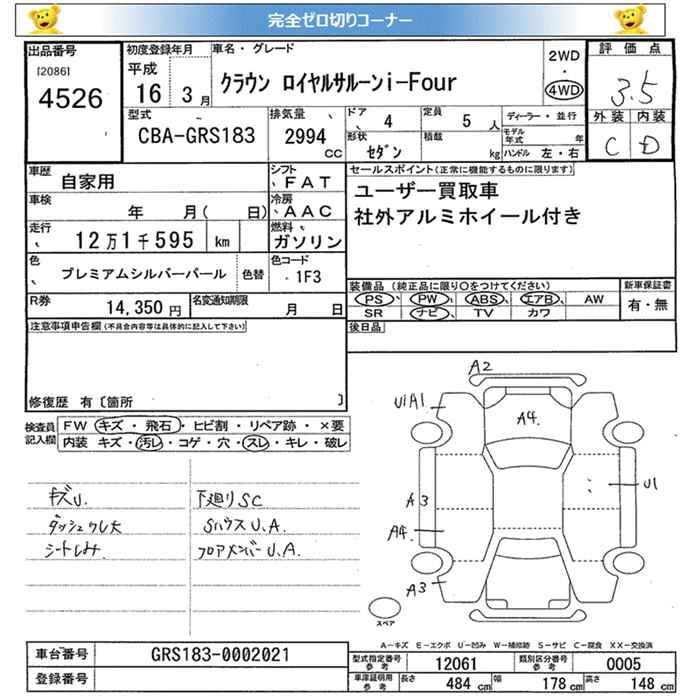 完全ゼロ切りコーナー
出品番号
[2086]
4526
初度登録年月
平成
16 3月
車名・グレード
クラウン ロイヤルサルーンi-Four
2WD
・
4WD
評価点
3.5
外装 内装
C D
型式
CBA-GRS183
排気量
2994
CC
ドア 4
定員 5 人
形状 セダン
積載 kg
ディーラー・並行
モデル年式 年
ハンドル 左・右
車歴 自家用
シフト FAT
車検 年 月( 日)
冷房 AAC
走行 12万1千595 km
燃料 ガソリン
色 プレミアムシルバーパール 色替
色コード 1F3
R券 14,350円
名変通知期限 月 日
セールスポイント(正常に機能するものに限ります)
ユーザー買取車
社外アルミホイール付き
装備品(純正品に限り○をつけてください)
PS PW ABS エアB AW
SR ナビ TV カワ
新車保証書
有・無
後日品
注意事項申告欄(不具合内容等は具体的に記入して下さい)
修復歴 有〔箇所 〕
検査員記入欄
FW キズ・飛石・ヒビ割・リペア跡・×要
内装 キズ・汚レ・コゲ・穴・スレ・キレ・破レ
キズU.
ダッシュワレ大
シートしみ
下廻りSC
SハウスU.A.
フロアメンバーU.A.
A2
U1A1
A4
A3
U1
A4
A3
スペア
A-キズ E-エクボ U-凹み W-補修跡 S-サビ C-腐食 XX-交換済
車台番号 GRS183-0002021
登録番号
型式指定番号参考 12061
類別区分番号参考 0005
車庫証明用参考 長さ 484cm 幅 178cm 高さ 148cm